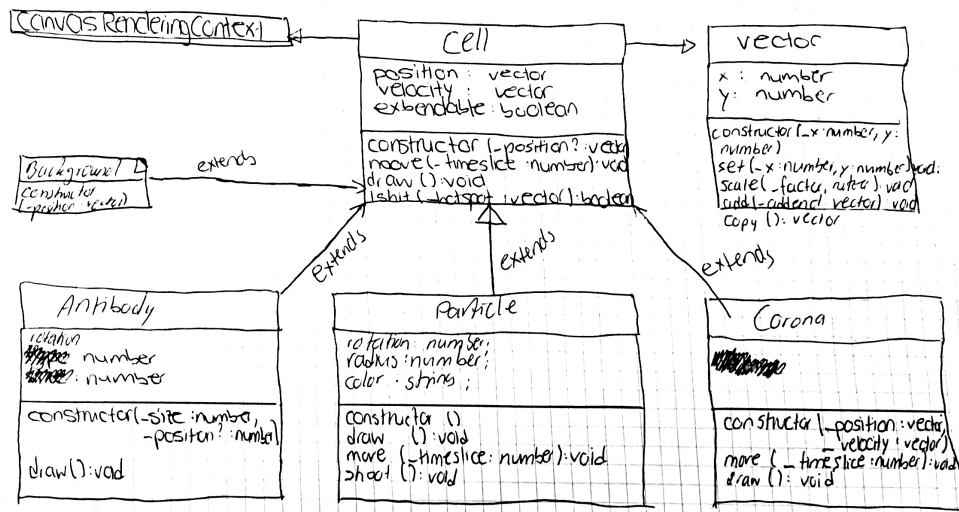 CanvasRenderingContext
Cell
position : vector
velocity : vector
exbendable : boolean
constructor (_position? : vector
moove (_timeslice : number): void
draw () : void
ishit (_hotspot : vector) : boolean
vector
x : number
y : number
constructor (_x : number, y :
number)
set (_x : number, y : number) void:
scale (_factor, ): void
add (_addend vector) : void
copy () : vector
Background
constructor
(_position vector)
extends
extends
extends
extends
Antibody
rotation
number
: number
constructor (_size : number,
_position? : number)
draw () : void
Particle
rotation : number;
radius : number;
color : string ;
constructor ()
draw () : void
move (_timeslice : number) : void
shoot () : void
Corona
constructor (_position : vector,
_velocity : vector)
move (_timeslice : number) : void
draw () : void